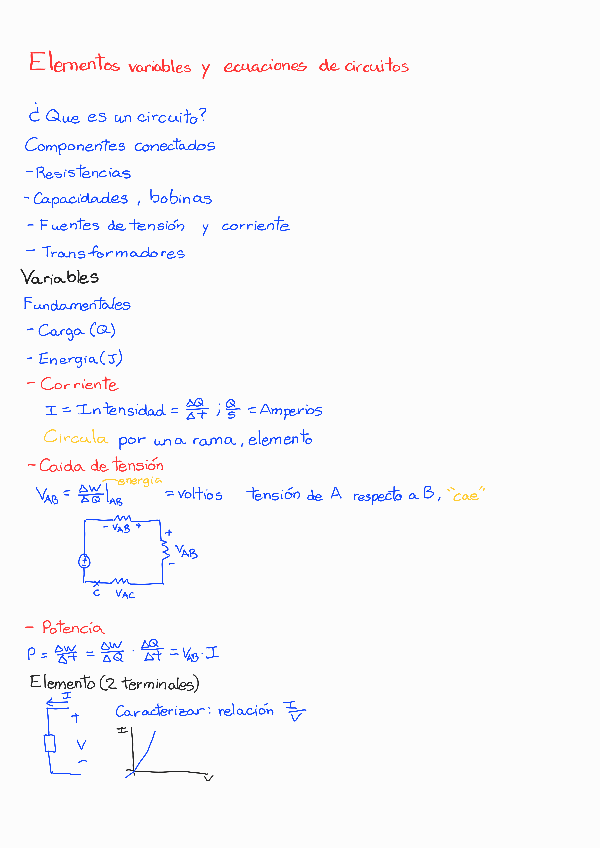 Elementos variables y ecuaciones de circuitos
¿Que es un circuito?
Componentes conectados
- Resistencias
- Capacidades, bobinas
- Fuentes de tensión y corriente
- Transformadores
Variables
Fundamentales
- Carga (Q)
- Energía (J)
- Corriente
I = Intensidad = ΔQ/Δt ; Q/s = Amperios
Circula por una rama, elemento
- Caida de tensión
energía
V_AB = ΔW/ΔQ|_AB = voltios tensión de A respecto a B, "cae"
- V_AB +
+
V_AB
-
+
C V_AC
- Potencia
P = ΔW/Δt = ΔW/ΔQ · ΔQ/Δt = V_AB · I
Elemento (2 terminales)
I
Caracterizar: relación I/V
+
V
-
I
V